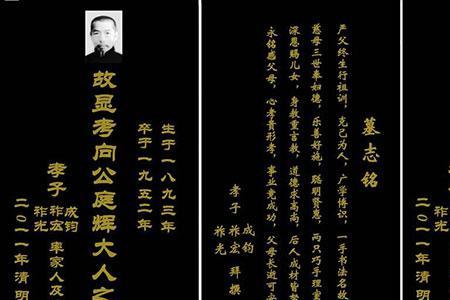 生于一八九三年
卒于一九五二年
故显考向公庭辉大人之
成钧
孝子 祚宏 率家人及
祚光
二〇一一年清明
墓志铭
严父终生行祖训，克己为人，广学博识，一手书名故
慈母三世奉如德，乐善好施，聪明贤惠，两只巧手理家
深恩赐儿女，身教重言教，道德求高尚，后人成材皆
永铭感父母，心孝贵形孝，事业竟成功，父母长逝可
成钧
孝子 祚宏 拜撰
祚光
孝
二〇一一年清